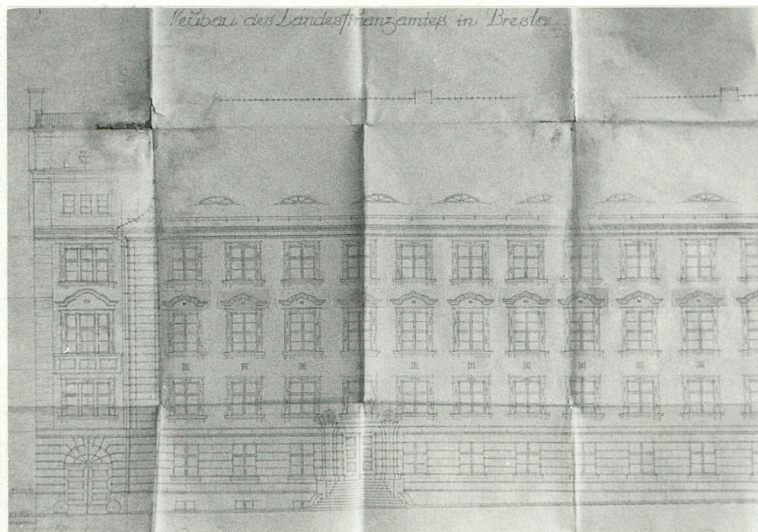 Neubau des Landesfinanzamtes in Breslau